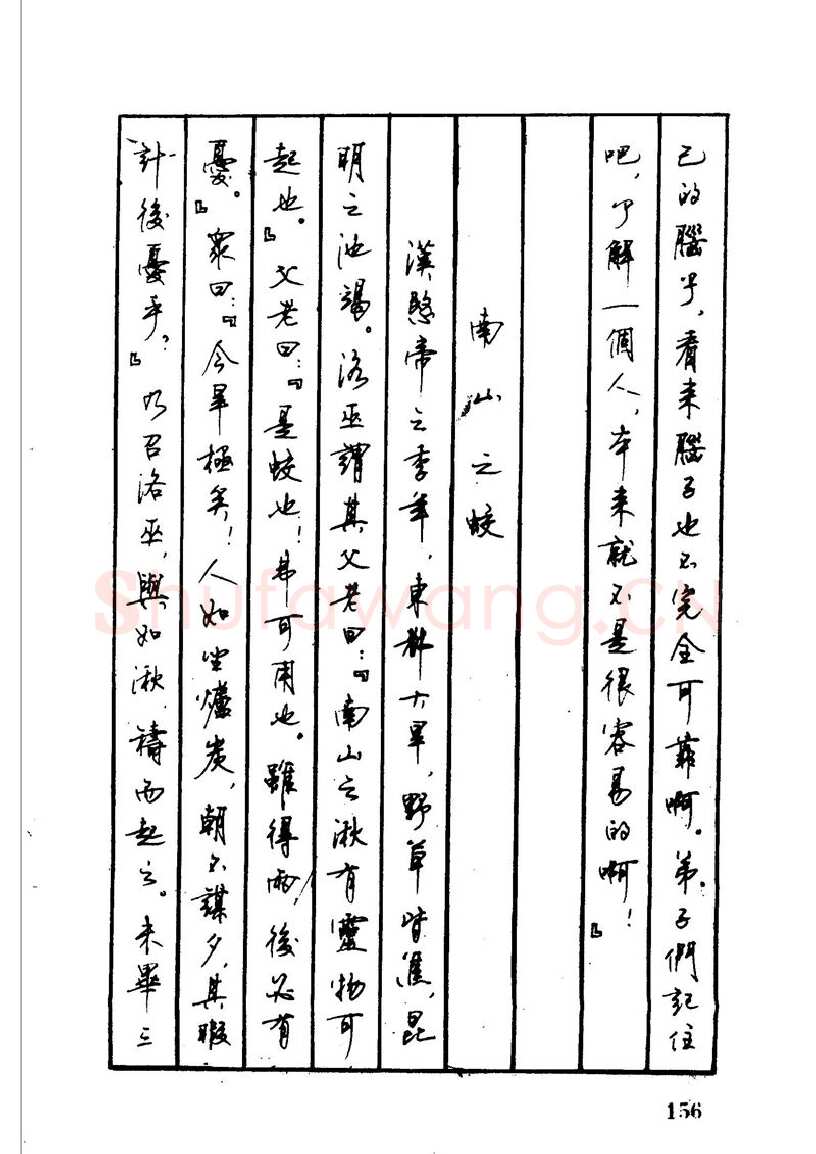 己的腦子，看来腦子也不完全可靠啊。弟子們記住
吧，了解一個人，本来就不是很容易的啊！』
南山之蛟
漢愍帝之季年，東都大旱，野草皆焦，昆
明之池竭。洛巫謂其父老曰：『南山之湫有靈物可
起也。』父老曰：『是蛟也！弗可用也。雖得雨，後必有
憂。』衆曰：『今旱極矣！人如坐爐炭，朝不謀夕，其暇
計後憂乎？』乃召洛巫，與如湫，禱而起之。未畢三
156
Shufawang.CN